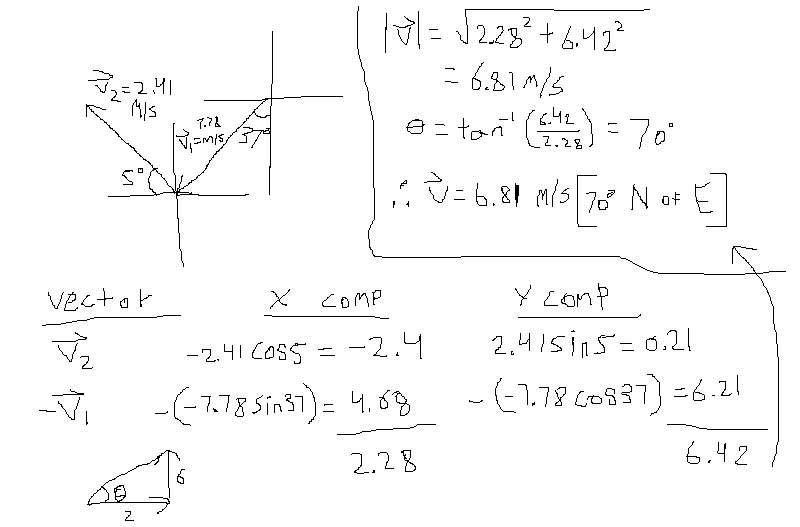 V₂ = 2.41 M/s
7.78
V₁ = M/s
37
5°
|V| = √2.28² + 6.42²
= 6.81 m/s
θ = tan⁻¹ (6.42/2.28) = 70°
∴ V = 6.81 m/s [70° N of E]
vector X comp Y comp
V₂ -2.41 cos5 = -2.4 2.41 sin5 = 0.21
-V₁ -(-7.78 sin37) = 4.68 -(-7.78 cos37) = 6.21
2.28 6.42
θ 6
2